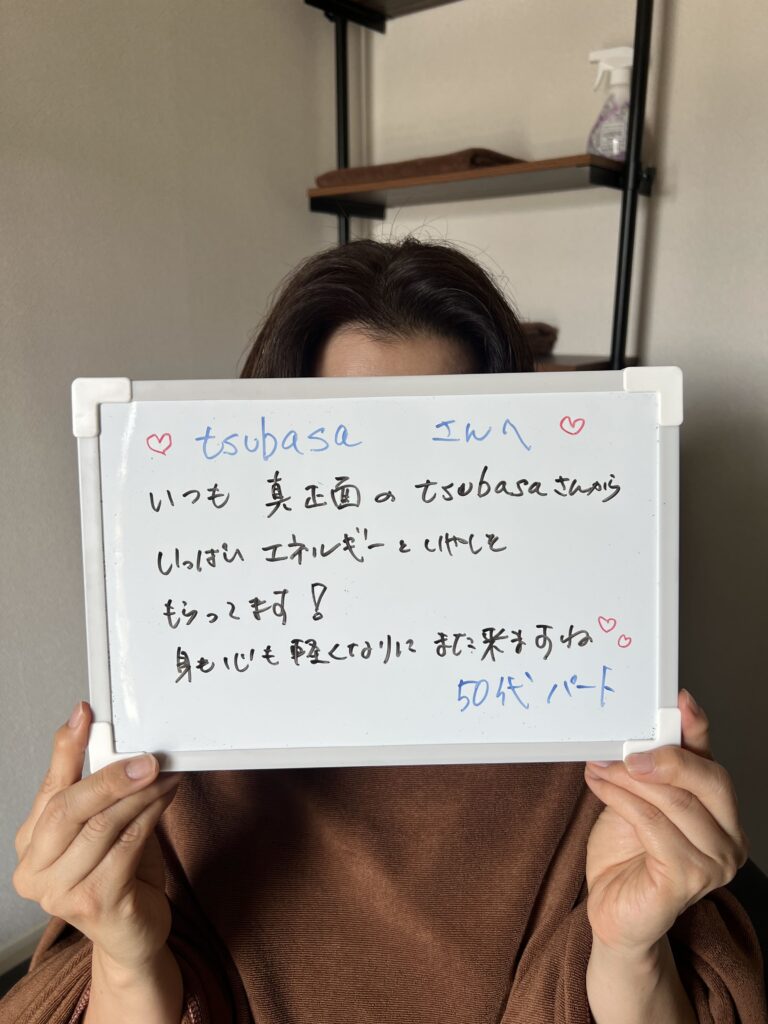 ♡ tsubasa さんへ ♡
いつも 真正面の tsubasaさんから
いっぱい エネルギーと いやしを
もらってます！
身も心も 軽くなりに また来ますね♡♡
50代 パート